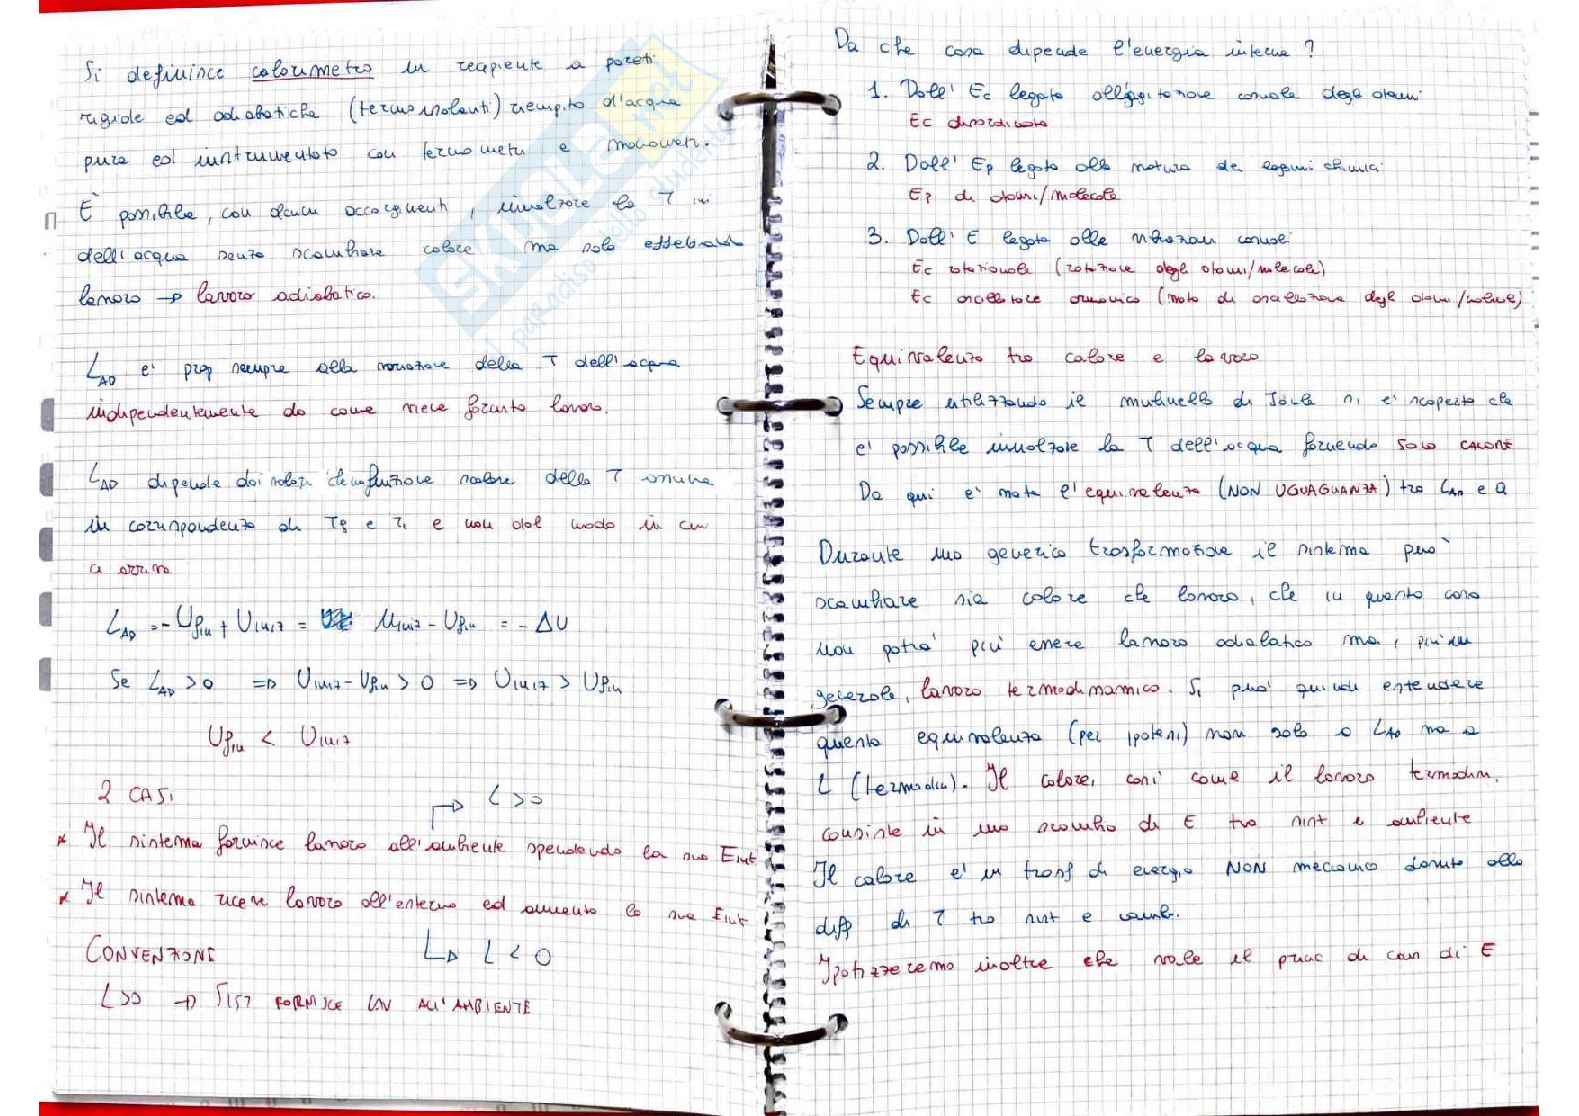 Si definisce calorimetro un recipiente a pareti
rigide ed adiabatiche (termoisolanti) riempito d'acqua
pura ed instrumentato con termometri e manometri.
È possibile, con alcuni accorgimenti, innalzare la T
dell'acqua senza scambiare calore ma solo effettuando
lavoro → lavoro adiabatico.
L_AD e' prop sempre alla variazione della T dell'acqua
indipendentemente da come viene fornito lavoro.
L_AD dipende dai valori che una funzione scalare della T assume
in corrispondenza di Tf e Ti e non dal modo in cui
ci arrivo
L_AD = -Ufin + Uiniz = Uiniz - Ufin = -ΔU
Se L_AD > 0 ⇒ Uiniz - Ufin > 0 ⇒ Uiniz > Ufin
Ufin < Uiniz
2 CASI
L>0
× Il sistema fornisce lavoro all'ambiente spendendo la sua Eint
× Il sistema riceve lavoro all'esterno ed aumenta la sua Eint
CONVENZIONE
L<0
L>0 → SIST FORNISCE LAV ALL'AMBIENTE
Da che cosa dipende l'energia interna?
1. Dall' Ec legata all'agitazione casuale degli atomi
Ec disordinata
2. Dall' Ep legata alla natura dei legami chimici
Ep di atomi/molecole
3. Dall' E legata alle vibrazioni casuali
Ec rotazionale (rotazione degli atomi/molecole)
Ec oscillatore armonico (moto di oscillazione degli atomi/molecole)
Equivalenza tra calore e lavoro
Sempre utilizzando il mulinello di Joule si e' scoperto che
e' possibile innalzare la T dell'acqua fornendo SOLO CALORE
Da qui e' nata l'equivalenza (NON UGUAGLIANZA) tra L_AD e Q
Durante una generica trasformazione il sistema puo'
scambiare sia calore che lavoro, che in questo caso
non potra' piu essere lavoro adiabatico ma, piu in
generale, lavoro termodinamico. Si puo' quindi estendere
questa equivalenza (per ipotesi) non solo a L_AD ma a
L (termodin). Il calore, cosi come il lavoro termodin.
consiste in uno scambio di E tra sist e ambiente
Il calore e' un trasf di energia NON meccanico dovuto alla
diff di T tra sist e amb.
Ipotizzeremo inoltre che vale il princ di cons di E